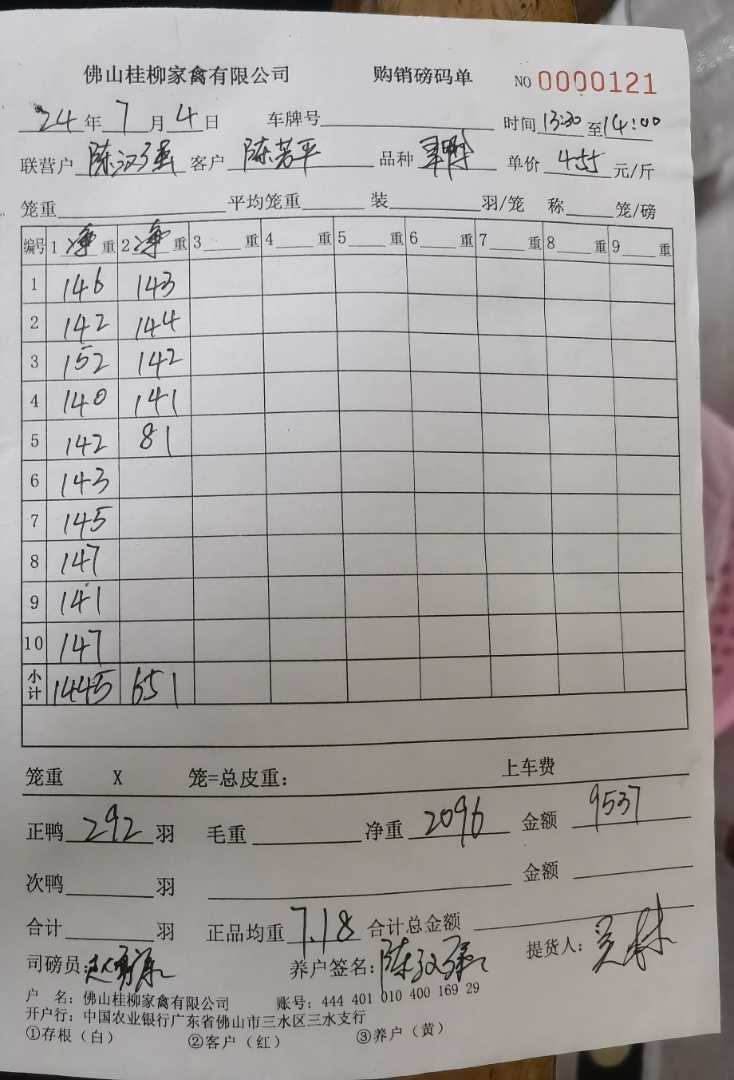 佛山桂柳家禽有限公司 购销磅码单 NO 0000121
24年7月4日 车牌号 时间13:30至14:00
联营户陈汉强 客户陈芳平 品种 单价4.55元/斤
笼重 平均笼重 装 羽/笼 称 笼/磅
编号 1净重 2净重 3 重 4 重 5 重 6 重 7 重 8 重 9 重
1 146 143
2 142 144
3 152 142
4 140 141
5 142 81
6 143
7 145
8 147
9 141
10 147
小计 1445 651
笼重 X 笼=总皮重: 上车费
正鸭292羽 毛重 净重2096 金额9537
次鸭 羽 金额
合计 羽 正品均重7.18 合计总金额
司磅员: 养户签名:陈汉强 提货人:
户 名: 佛山桂柳家禽有限公司 账号: 444 401 010 400 169 29
开户行: 中国农业银行广东省佛山市三水区三水支行
①存根(白) ②客户(红) ③养户(黄)